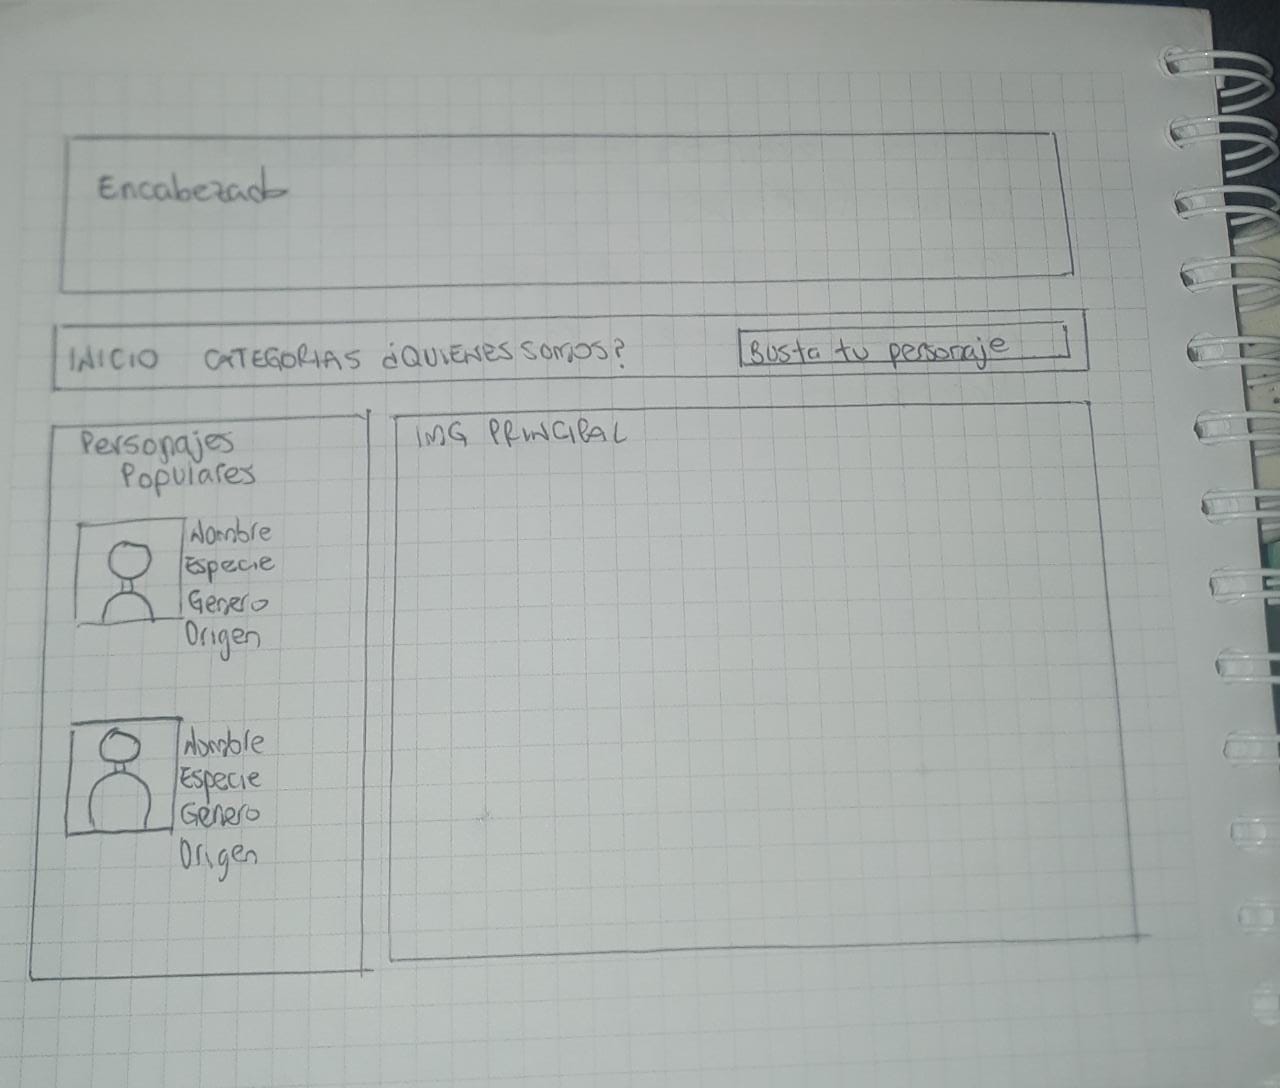 Encabezado
INICIO CATEGORIAS ¿QUIENES SOMOS? Busta tu personaje
Personajes
Populares
Nombre
Especie
Genero
Origen
Nombre
Especie
Genero
Origen
IMG PRINCIPAL